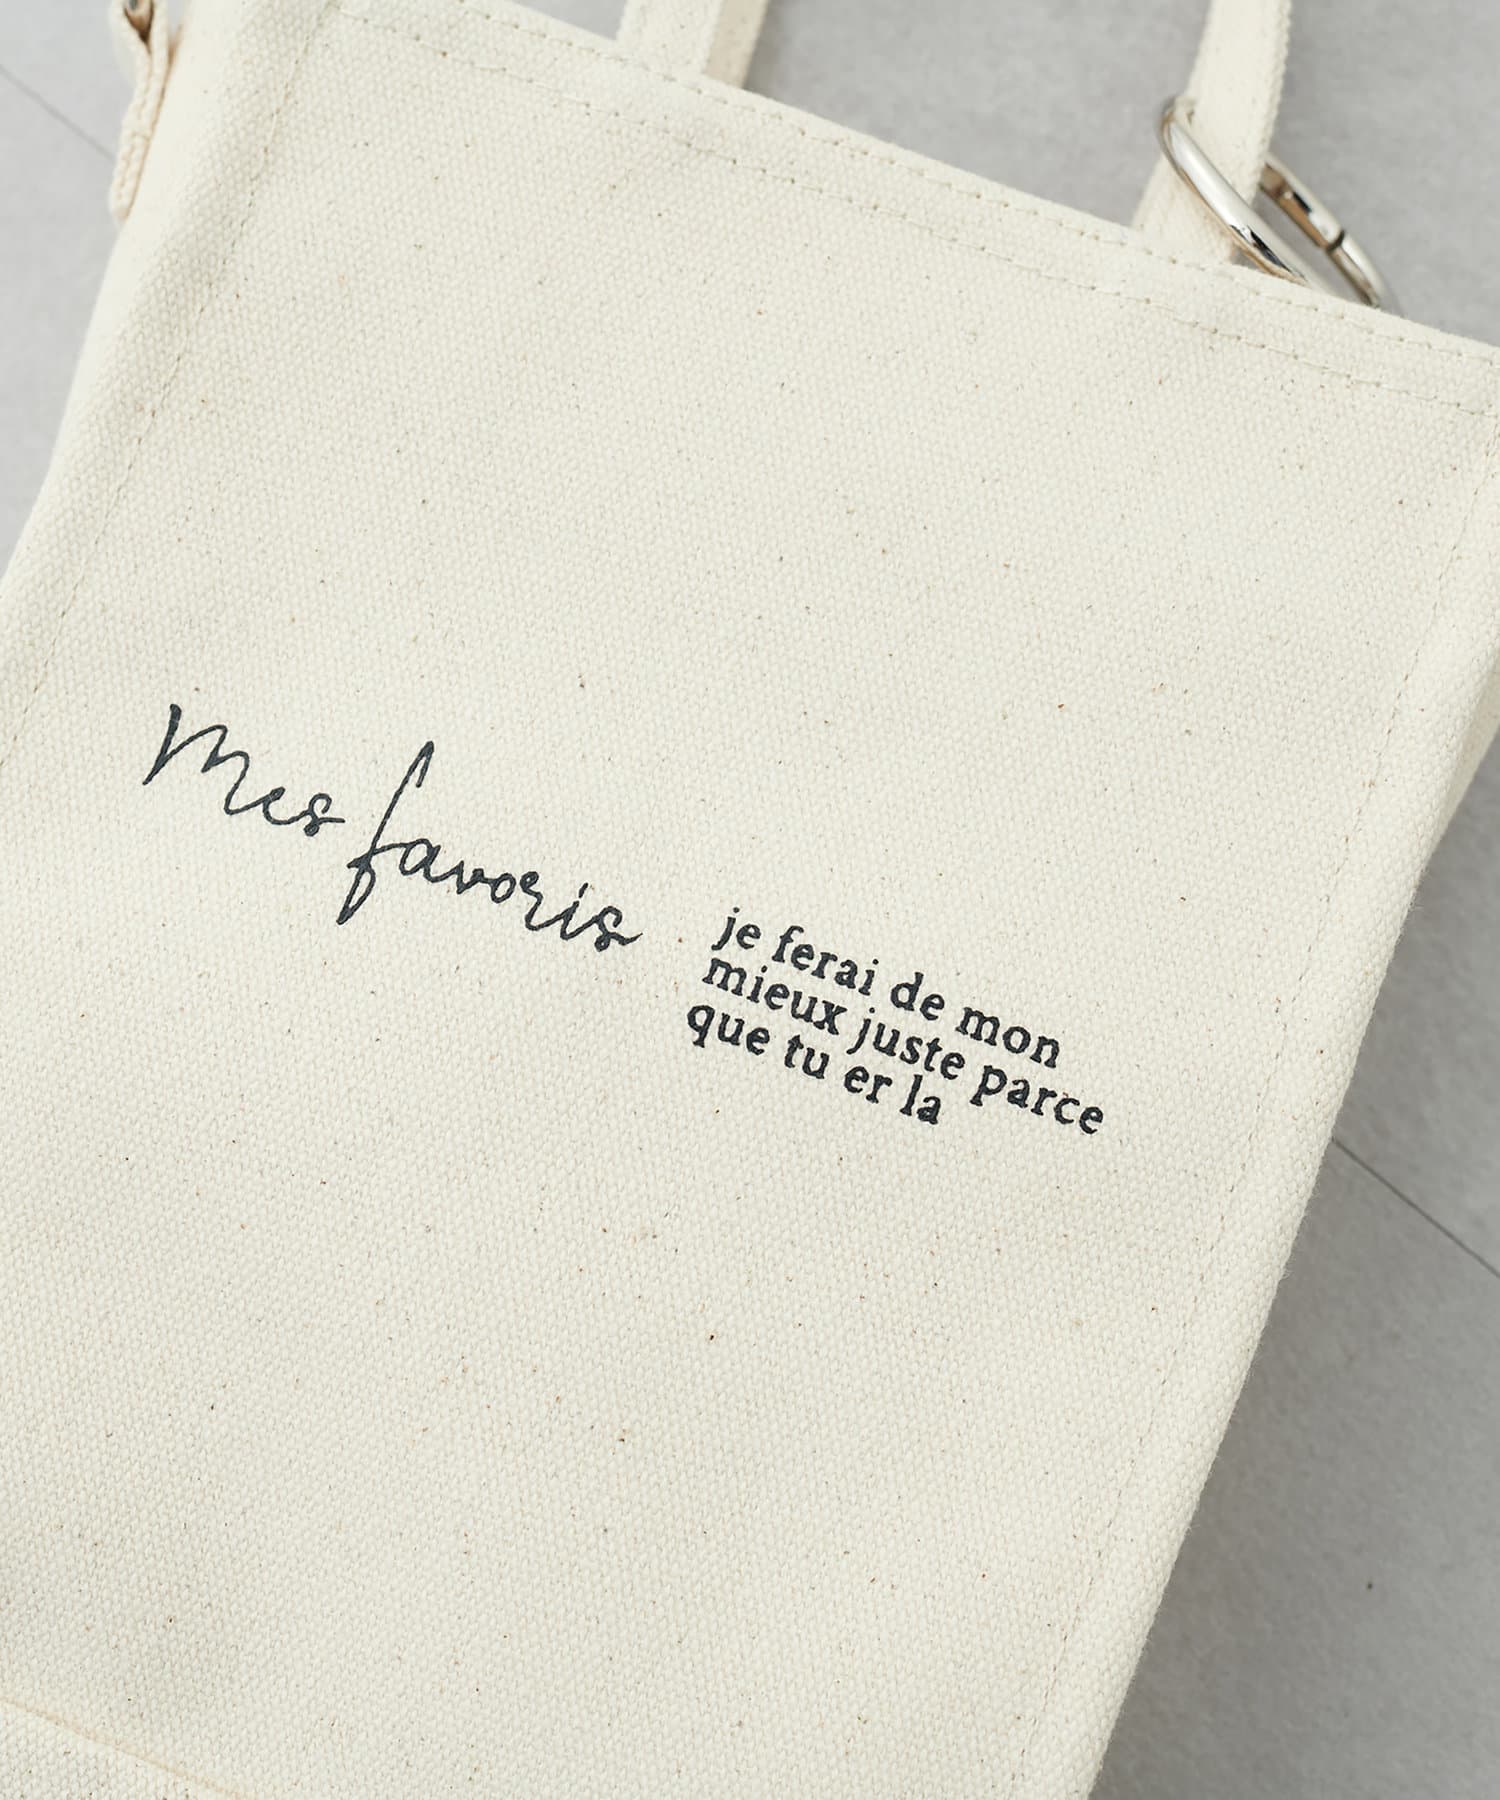 Mes favoris
je ferai de mon
mieux juste parce
que tu er la